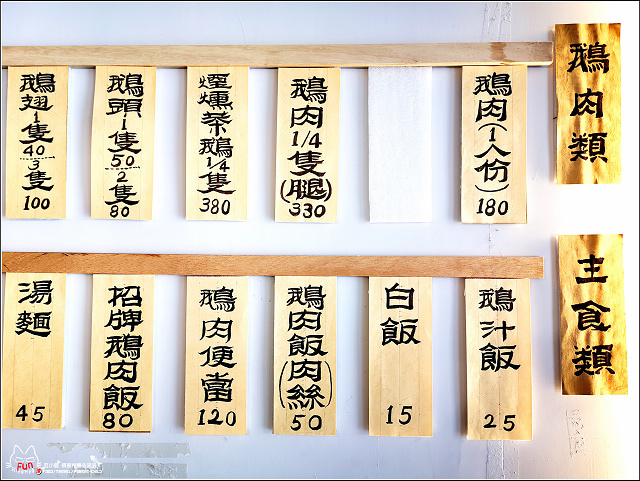 鵝肉類
鵝肉(1人份)
180
鵝肉1/4隻(腿)
330
煙燻茶鵝1/4隻
380
鵝頭1隻50
2隻80
鵝翅1隻40
3隻100
主食類
鵝汁飯
25
白飯
15
鵝肉飯(肉絲)
50
鵝肉便當
120
招牌鵝肉飯
80
湯麵
45
FUN